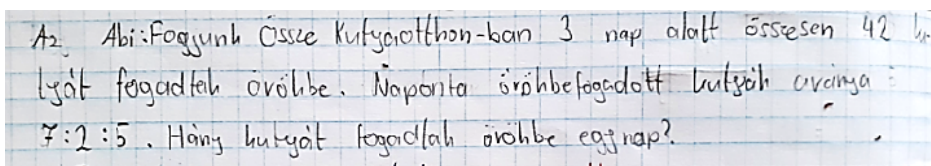 A2. Abi: Fogjunk Össze Kutyaotthon-ban 3 nap alatt összesen 42 ku-
tyát fogadtak örökbe. Naponta örökbefogadott kutyák aránya
7:2:5. Hány kutyát fogadtak örökbe egy nap?